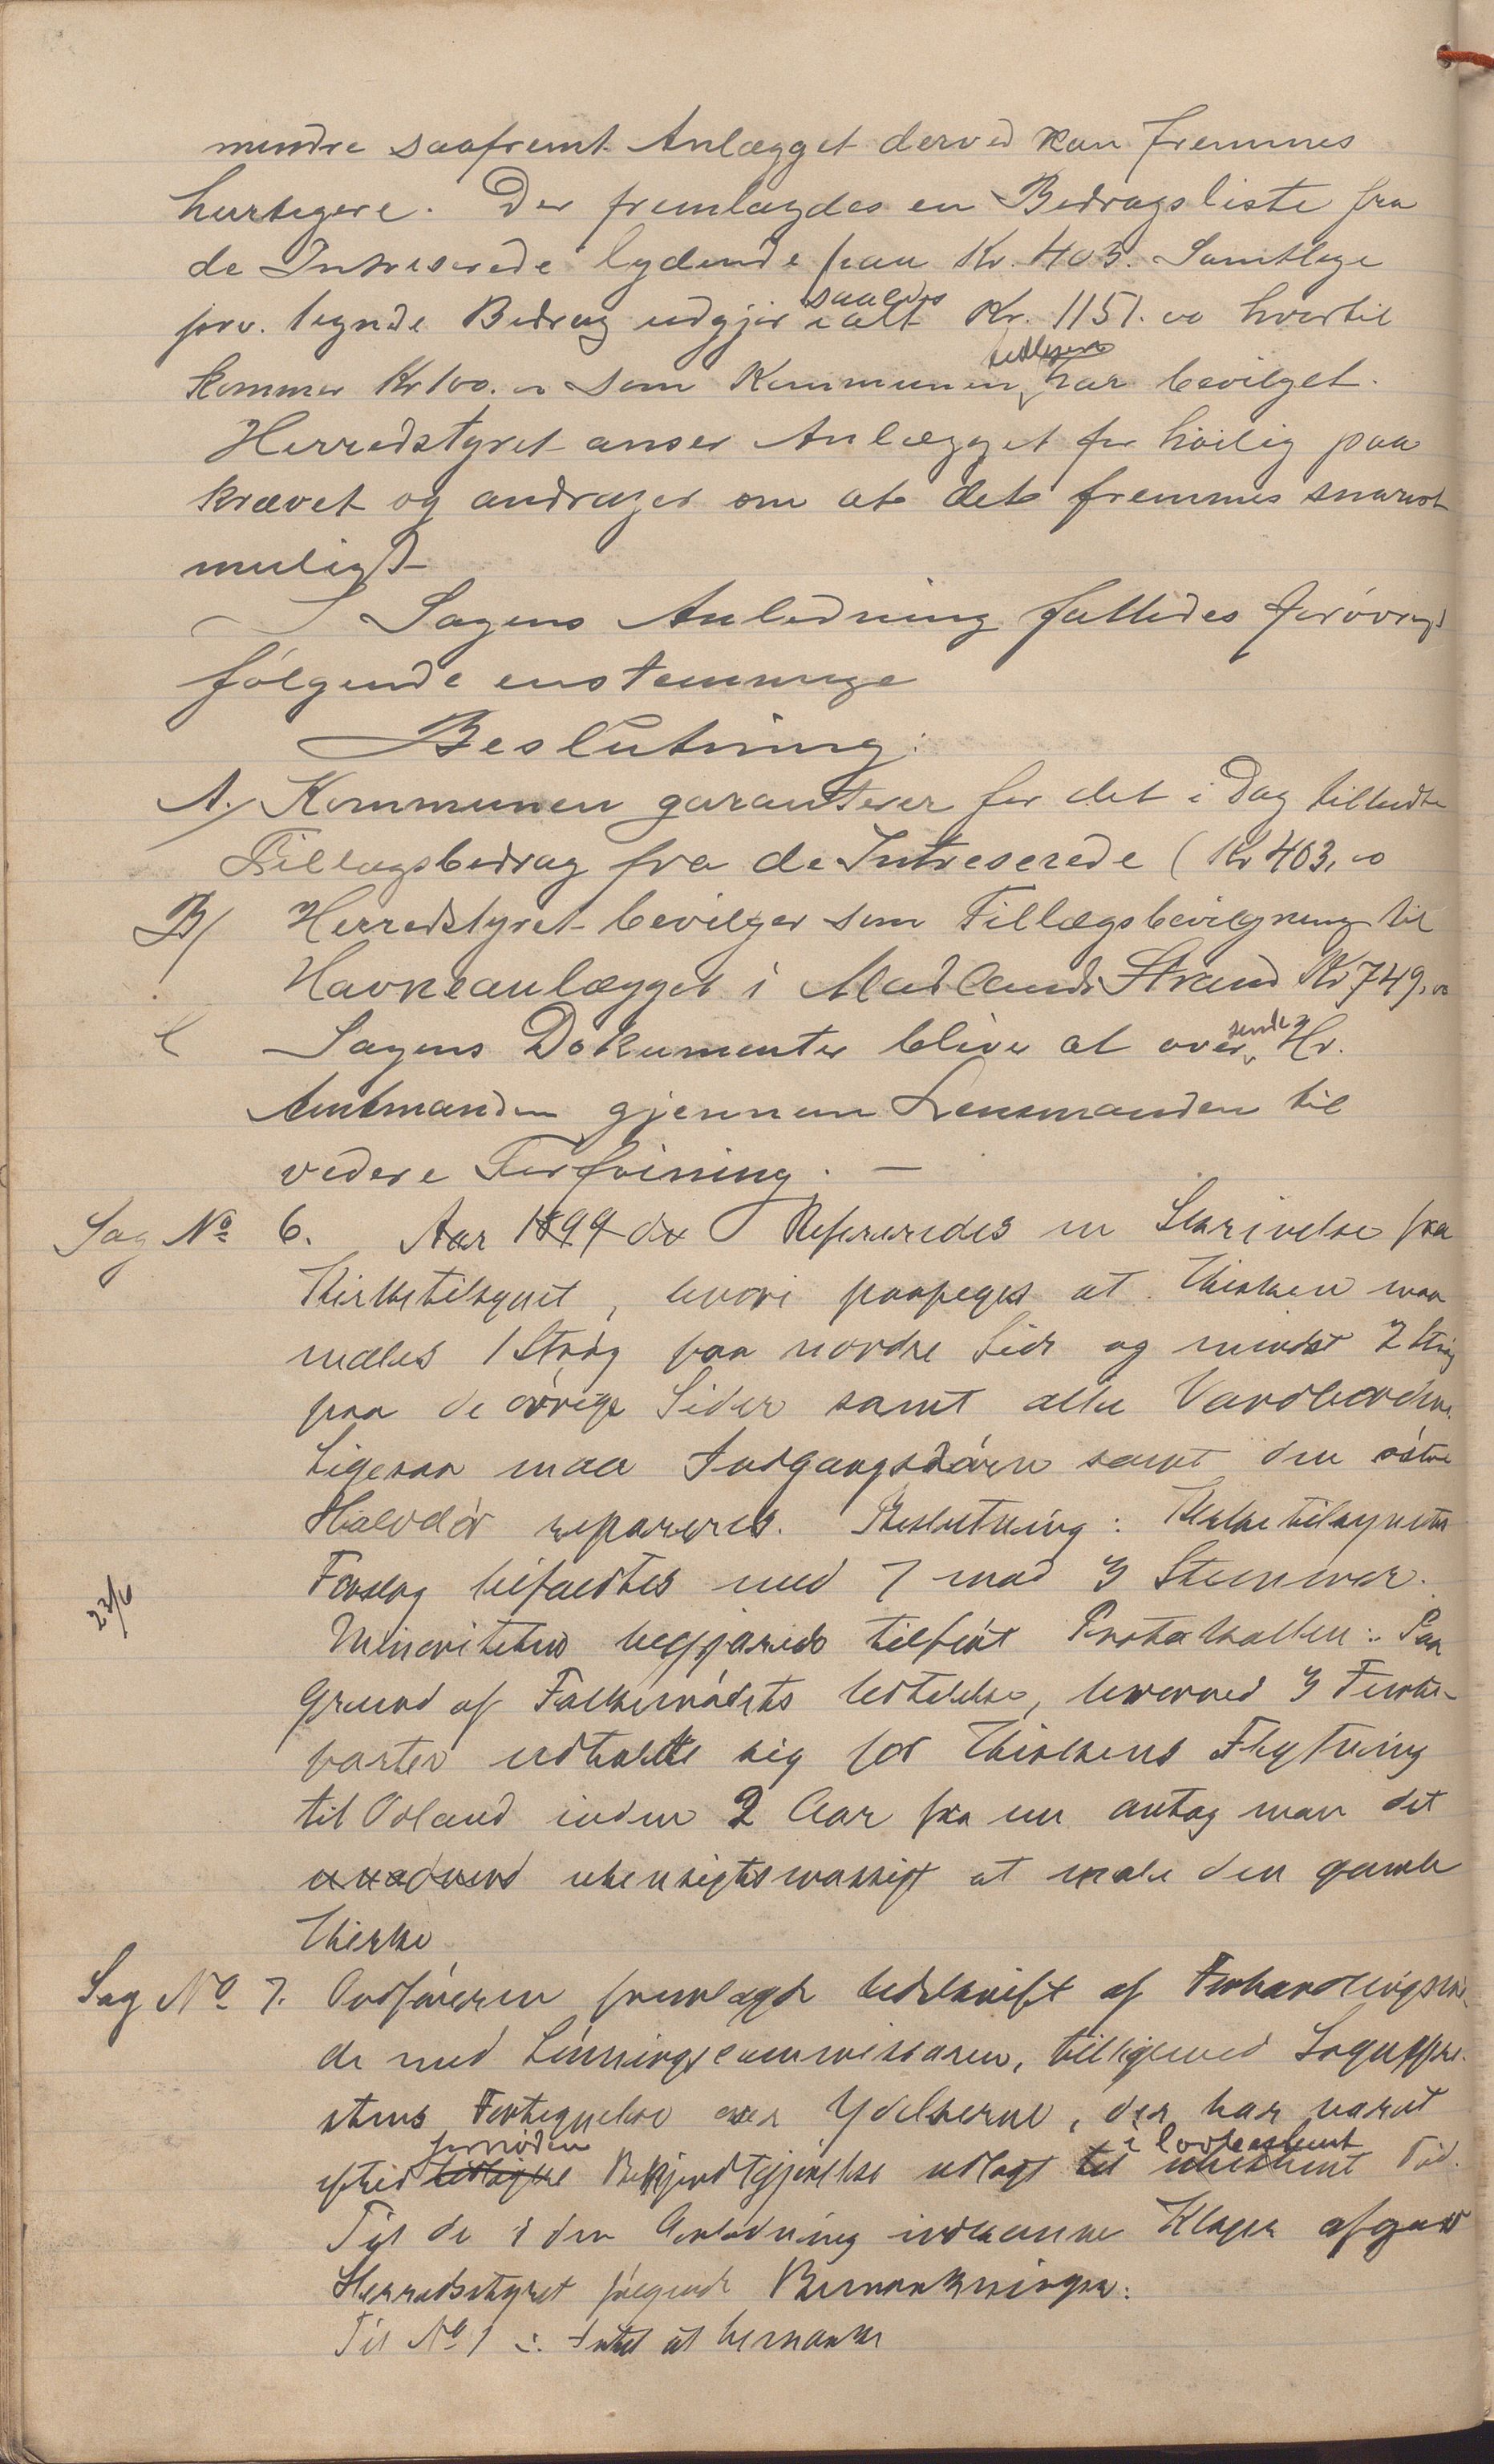 mindre saafremt Anlægget derved kan fremmes
hurtigere. Der fremlagdes en Bidragsliste fra
de Intreserede lydende paa Kr. 403. Samtlige
prv. tegnede Bidrag udgjør saaledes ialt Kr. 1151.00 hvortil
kommer Kr 100.00 som Kommunen tidligere har bevilget.
Herredstyret anser Anlægget for høilig paa
krævet og andrager om at det fremmes snarest
muligt
I Sagens Anledning fattedes forøvrigt
følgende enstemmige
Beslutning:
A/ Kommunen garanterer for det i Dag tilbudte
Tillægsbidrag fra de Intreserede (Kr 403,00
B/ Herredstyret bevilger som Tillægsbevilgning til
Havneanlægget i Madlands Strand Kr 749,00
C Sagens Dokumenter bliver at oversende Hr.
Amtmanden gjennem Lensmanden til
videre Forføining. —
Sag No 6. Aar 1899 de Refereredes en Skrivelse fra
Kirketilsynet, hvori paapeges at Kirken maa
males 1 Strøg paa nordre Side og mindst 2 Strøg
paa de øvrige Sider samt alle Vandbordene.
Ligesaa maa Indgangsdøren samt den østre
Halvdør repareres. Beslutning: Kirketilsynets
Forslag bifaldtes med 7 mod 3 Stemmer.
23/6
Minoriteten begjærede tilført Protokollen: Paa
Grund af Folkemødets Udtalelse, hvorved 3 Femte-
parter udtalte sig for Kirkens Flytning
til Oland inden 2 Aar fra nu antog man det
unødvend uhensigtsmæssigt at male den gamle
Kirke
Sag No 7. Ordføreren fremlagde Udskrift af Forhandlingsmø-
de med Lønningscommissionen, tilligemed Sognepre-
stens Fortegnelse over Ydelserne, der har været
efter tidligere fornøden Bekjendtgjørelse udlagt til ubestemt i lovbestemt Tid.
Til de i den Anledning indkomne Klager afgav
Herredsstyret følgende Bemærkninger:
Til No 1 : Intet at bemærke